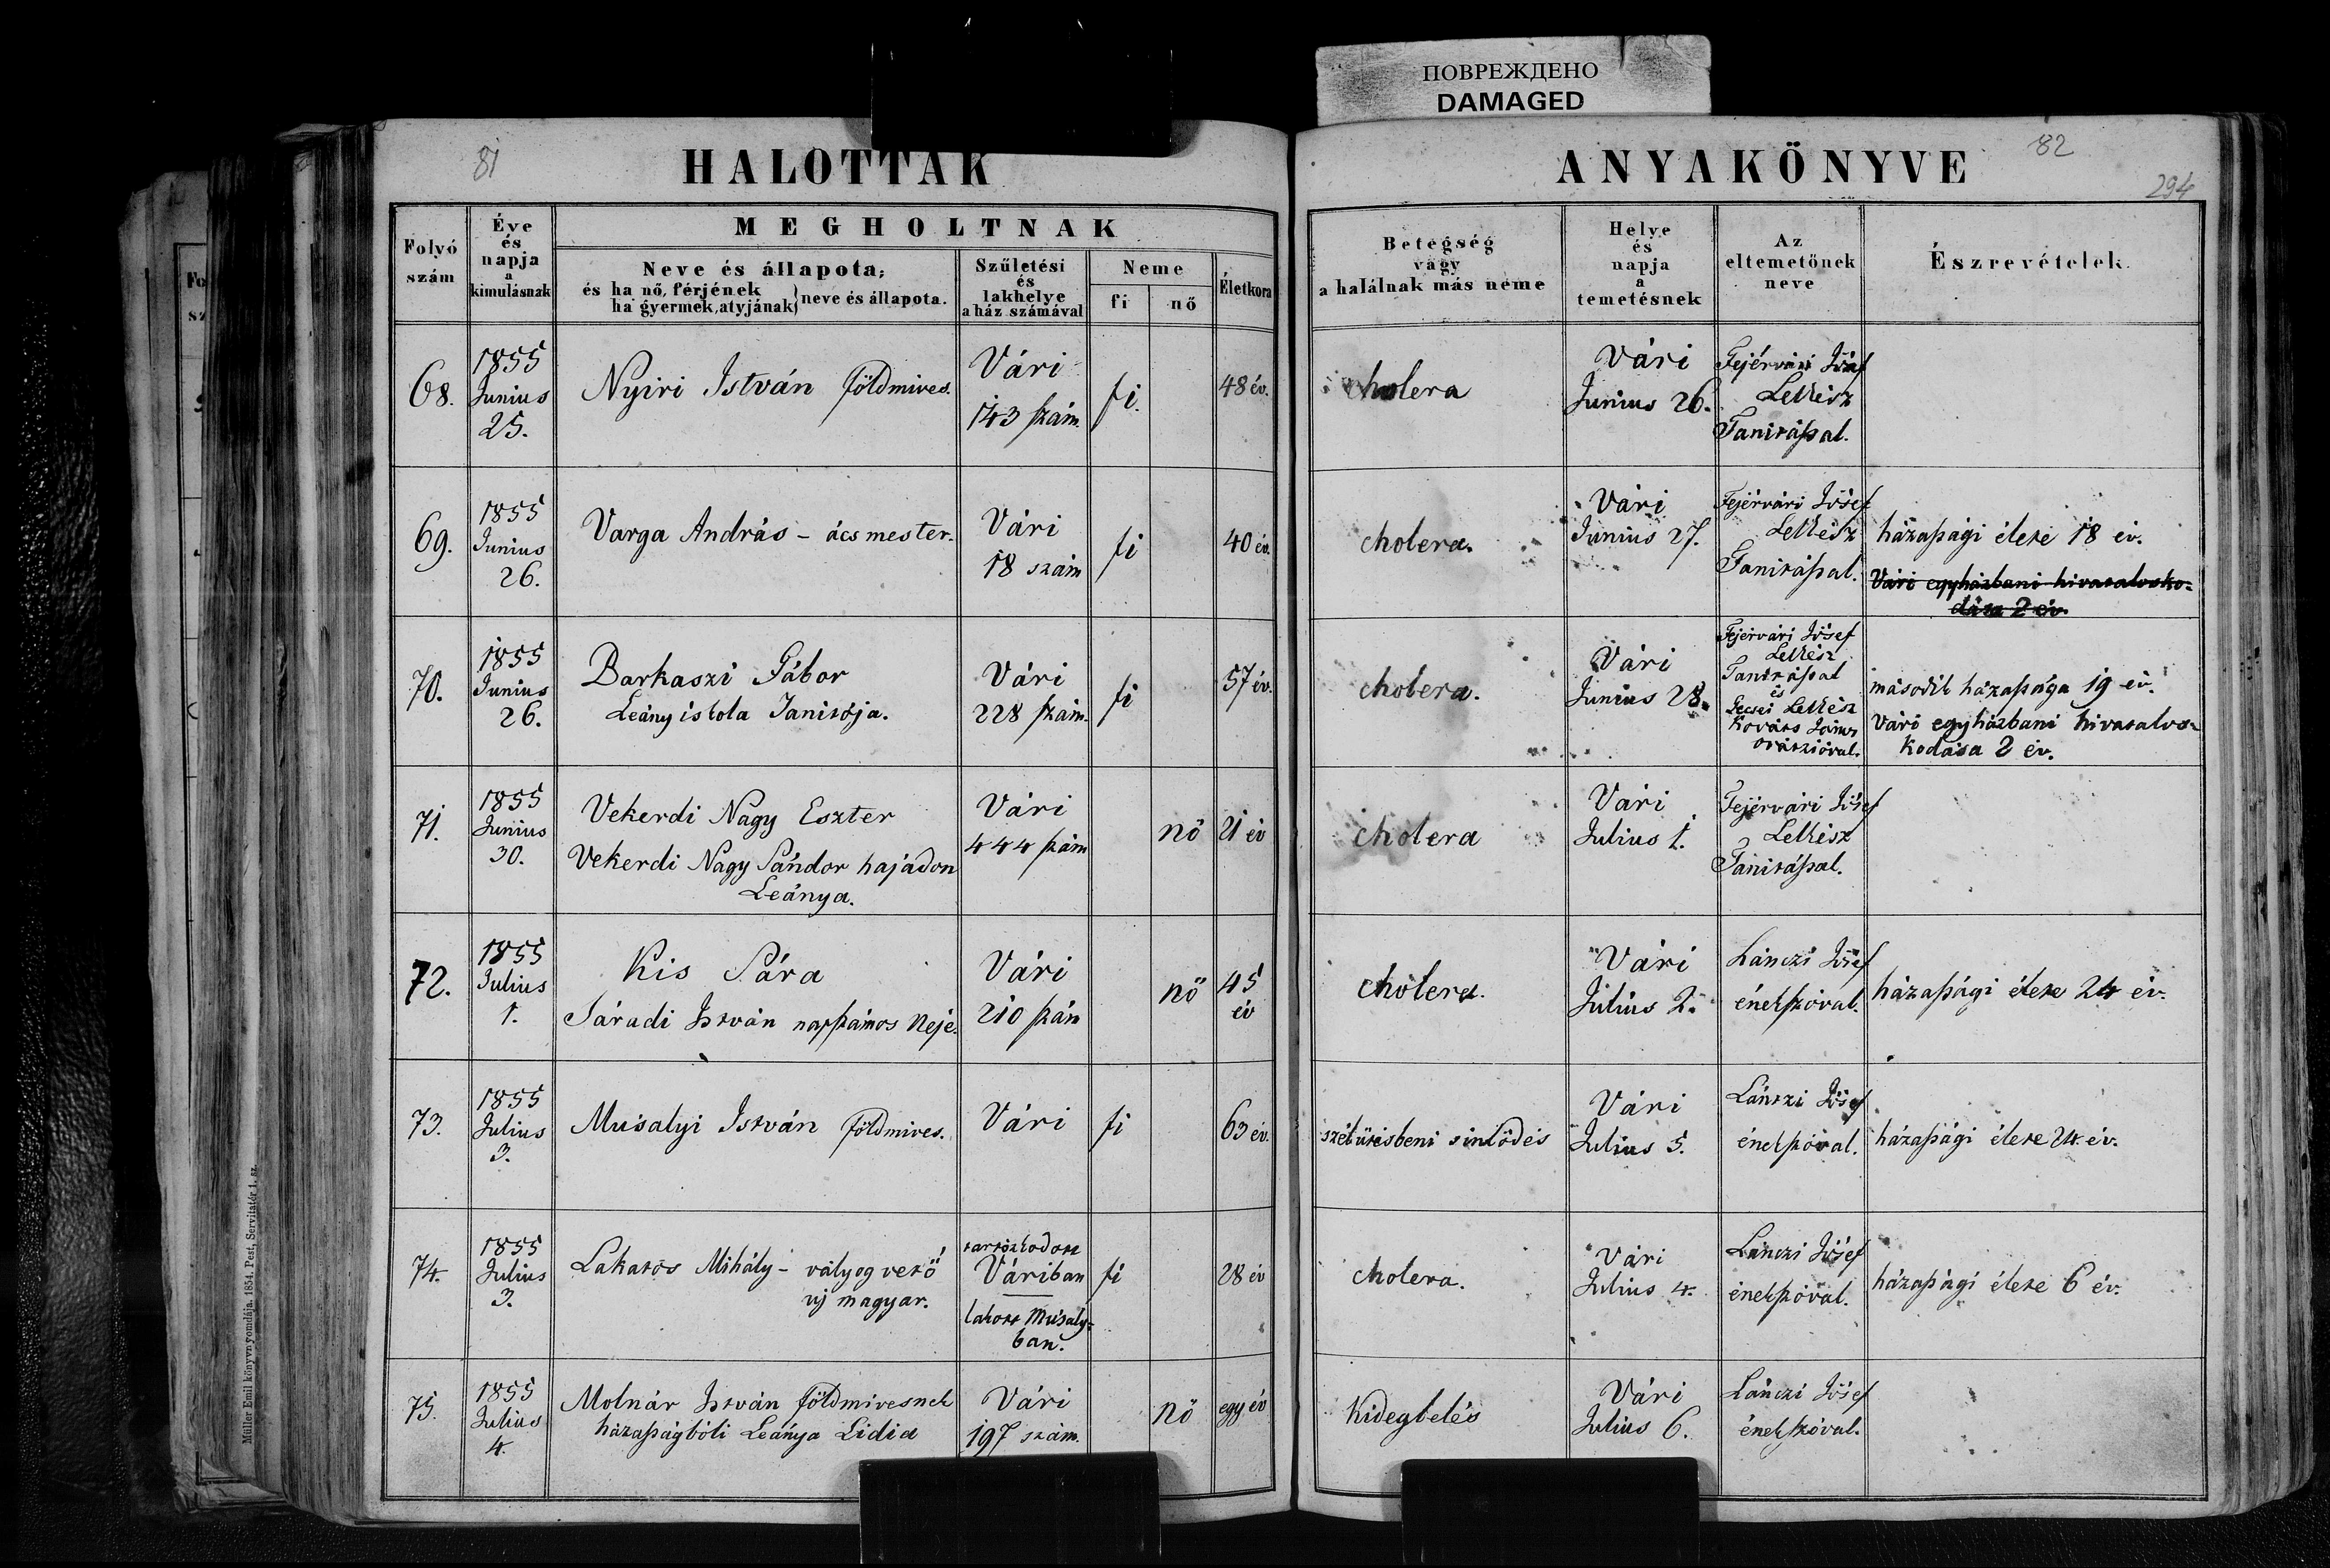 ПОВРЕЖДЕНО
DAMAGED
81
HALOTTAK
Folyó szám
Éve és napja a kimulásnak
MEGHOLTNAK
Neve és állapota;
és ha nő, férjének
ha gyermek, atyjának} neve és állapota.
Születési és lakhelye a ház számával
Neme
fi
nő
Életkora
68.
1855
Junius
25.
Nyiri István földmives.
Vári
143 szám.
fi.
48 év.
69.
1855
Junius
26.
Varga András – ács mester.
Vári
18 szám
fi
40 év.
70.
1855
Junius
26.
Barkaszi Gábor
Leány iskola Tanitója.
Vári
228 szám.
fi
57 év.
71.
1855
Junius
30.
Vekerdi Nagy Eszter
Vekerdi Nagy Sándor hajadon
Leánya.
Vári
444 szám
nő
21 év
72.
1855
Julius
1.
Kis Sára
Sáradi István napszámos Neje.
Vári
210 szám
nő
45
év
73.
1855
Julius
3.
Musalyi István földmives.
Vári
fi
63 év.
74.
1855
Julius
3.
Lakatos Mihály – vályog vető
uj magyar.
tartózkodott
Váriban
lakott Musaly-
ban.
fi
28 év
75.
1855
Julius
4.
Molnár István földmivesnek
házasságbóli Leánya Lidia
Vári
197 szám.
nő
egy év
Müller Emil könyvnyomdája. 1854. Pest, Servitatér 1. sz.
82
294
ANYAKÖNYVE
Betegség
vagy
a halálnak más neme
Helye
és
napja
a
temetésnek
Az
eltemetőnek
neve
Észrevételek.
cholera
Vári
Junius 26.
Fejérvári Jósef
Lelkész
Tanitással.
cholera.
Vári
Junius 27.
Fejérvári Jósef
Lelkész
Tanitással.
házassági élete 18 év.
Vári egyházbani hivataloska-
dása 2 év.
cholera.
Vári
Junius 28.
Fejérvári Jósef
Lelkész
Tanitással
és
Gecsei Lelkész
Kováts János
orátzióval.
második házassága 19 év.
Vári egyházbani hivatalos-
kodása 2 év.
cholera
Vári
Julius 1.
Fejérvári Jósef
Lelkész
Tanitással.
cholera.
Vári
Julius 2.
Lánczi Jósef
énekszóval.
házassági élete 24 év.
szélütésbeni sinlődés
Vári
Julius 5.
Lántzi Jósef
énekszóval.
házassági élete 24 év.
cholera.
Vári
Julius 4.
Lánczi Jósef
énekszóval.
házassági élete 6 év.
Kidegbelés
Vári
Julius 6.
Lánczi Jósef
énekszóval.